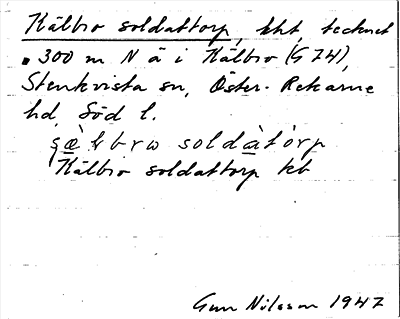 Kälbro soldattorp, kht, tecknet
• 300 m N ä i Kälbro (G 74),
Stenkvista sn, Öster-Rekarne
hd, Söd l.
soldàtòrp
Kälbro soldattorp kb
Gun Nilsson 1947